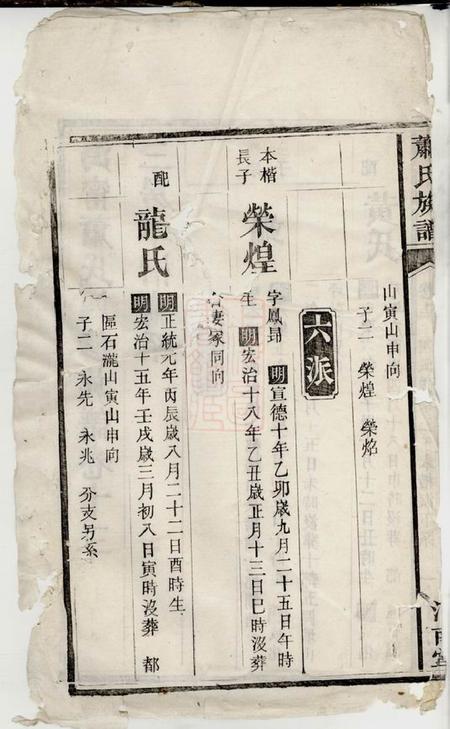 蕭氏族譜
山寅山申向
子二 榮煌 榮焰
六派
本楷
長子
榮煌
字鳳昻 明宣德十年乙卯歲九月二十五日午時
生 明宏治十八年乙丑歲正月十三日巳時沒葬
合妻冢同向
配
龍氏
明正統元年丙辰歲八月二十二日酉時生
明宏治十五年壬戌歲三月初八日寅時沒葬 都
區石瀧山寅山申向
子二 永先 永兆 分支另系